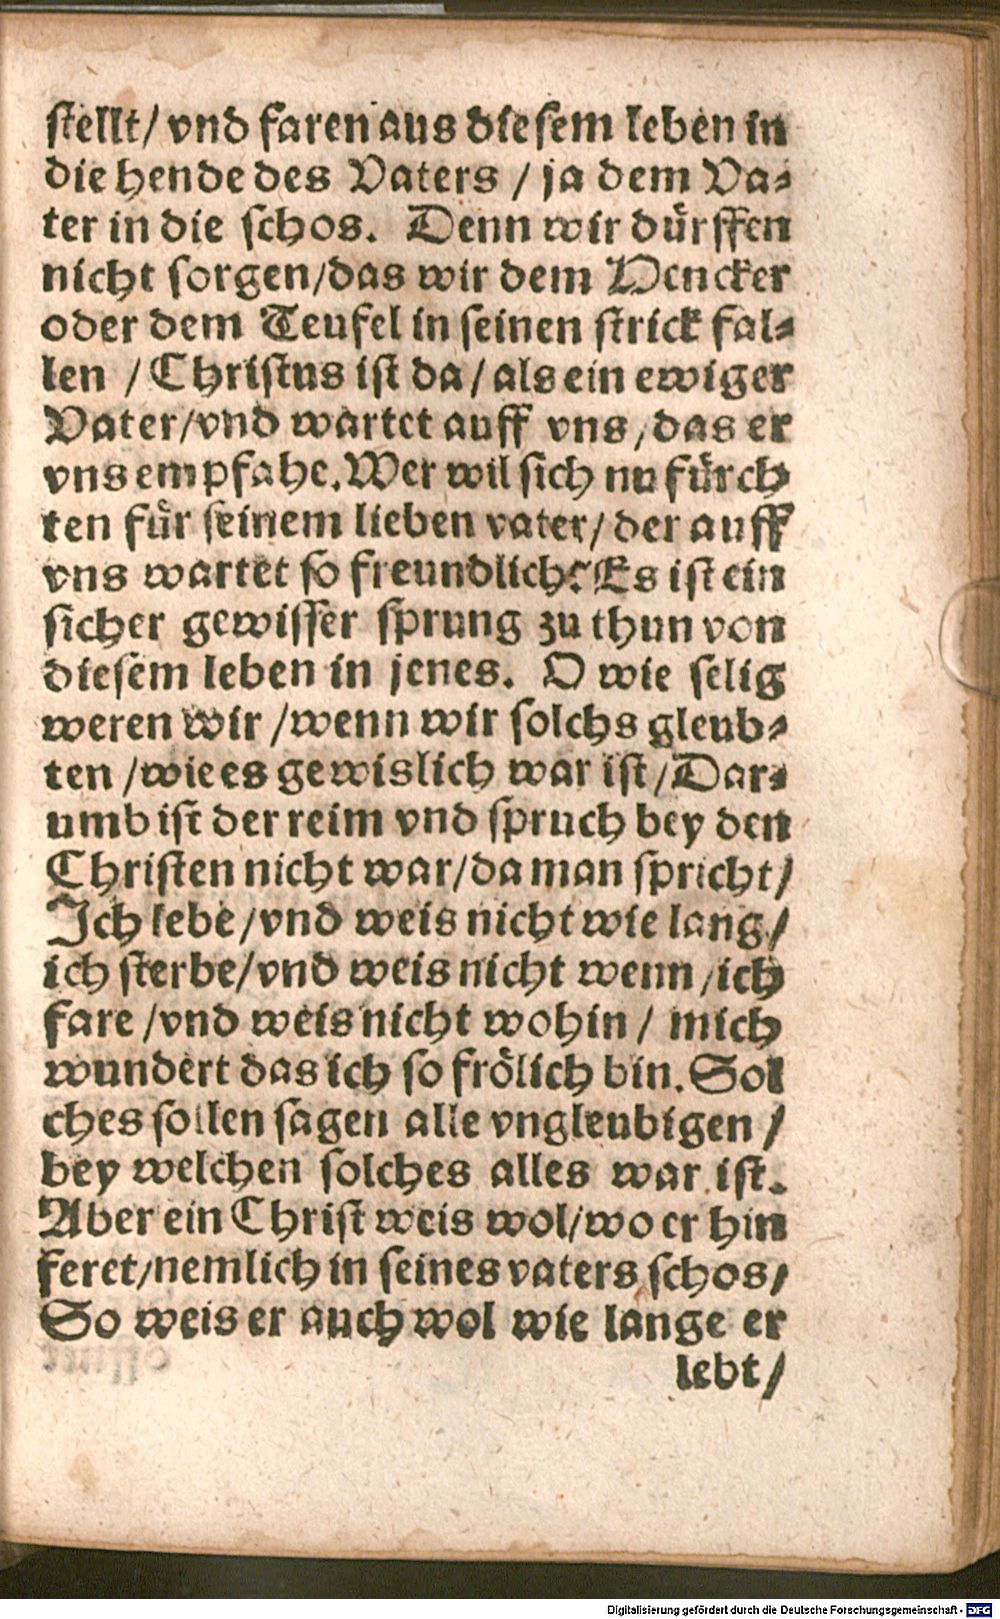 stellt/ vnd faren aus diesem leben in
die hende des Vaters / ja dem Va-
ter in die schos. Denn wir dürffen
nicht sorgen/das wir dem Hencker
oder dem Teufel in seinen strick fal-
len / Christus ist da/ als ein ewiger
Vater/vnd wartet auff vns/das er
vns empfahe. Wer wil sich nu fürch
ten für seinem lieben vater/ der auff
vns wartet so freundlich? Es ist ein
sicher gewisser sprung zu thun von
diesem leben in jenes. O wie selig
weren wir /wenn wir solchs gleub-
ten /wie es gewislich war ist/Dar-
umb ist der reim vnd spruch bey den
Christen nicht war/da man spricht/
Ich lebe/vnd weis nicht wie lang/
ich sterbe/vnd weis nicht wenn/ich
fare /vnd weis nicht wohin/ mich
wundert das ich so frölich bin. Sol
ches sollen sagen alle vngleubigen /
bey welchen solches alles war ist.
Aber ein Christ weis wol/wo er hin
feret/nemlich in seines vaters schos/
So weis er auch wol wie lange er
lebt/
Digitalisierung gefördert durch die Deutsche Forschungsgemeinschaft - DFG